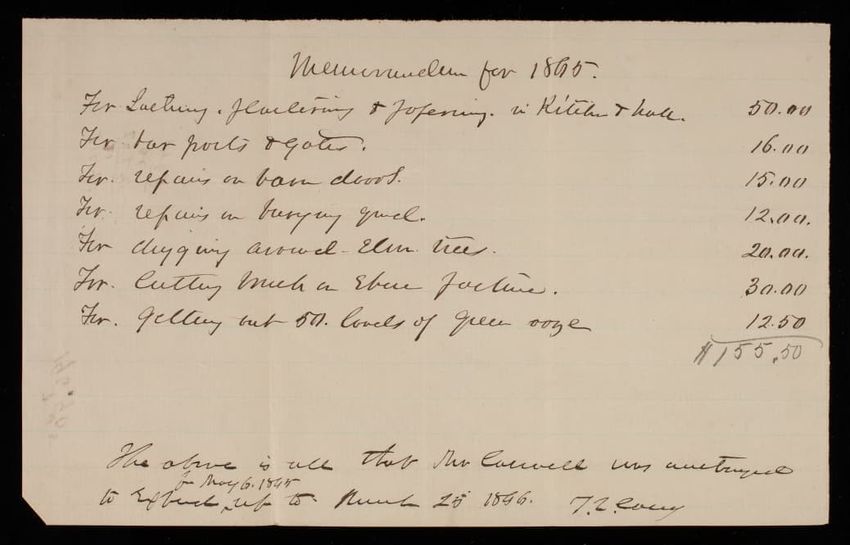 Memorandum for 1895.
For Lathing, plastering & papering. in Kitchen & hall. 50.00
For bar posts & gates. 16.00
For. repairs on barn doors. 15.00
For. repairs on burying grnd. 12.00.
For digging around Elm trees. 20.00.
For. Cutting brush on Eben pasture. 30.00
For. Getting out 50. loads of green 12.50
$155.50
The above is all that Mr Caswell was authorized
fr May 6. 1895
to Expend, up to March 25 1896. T. L. Casey